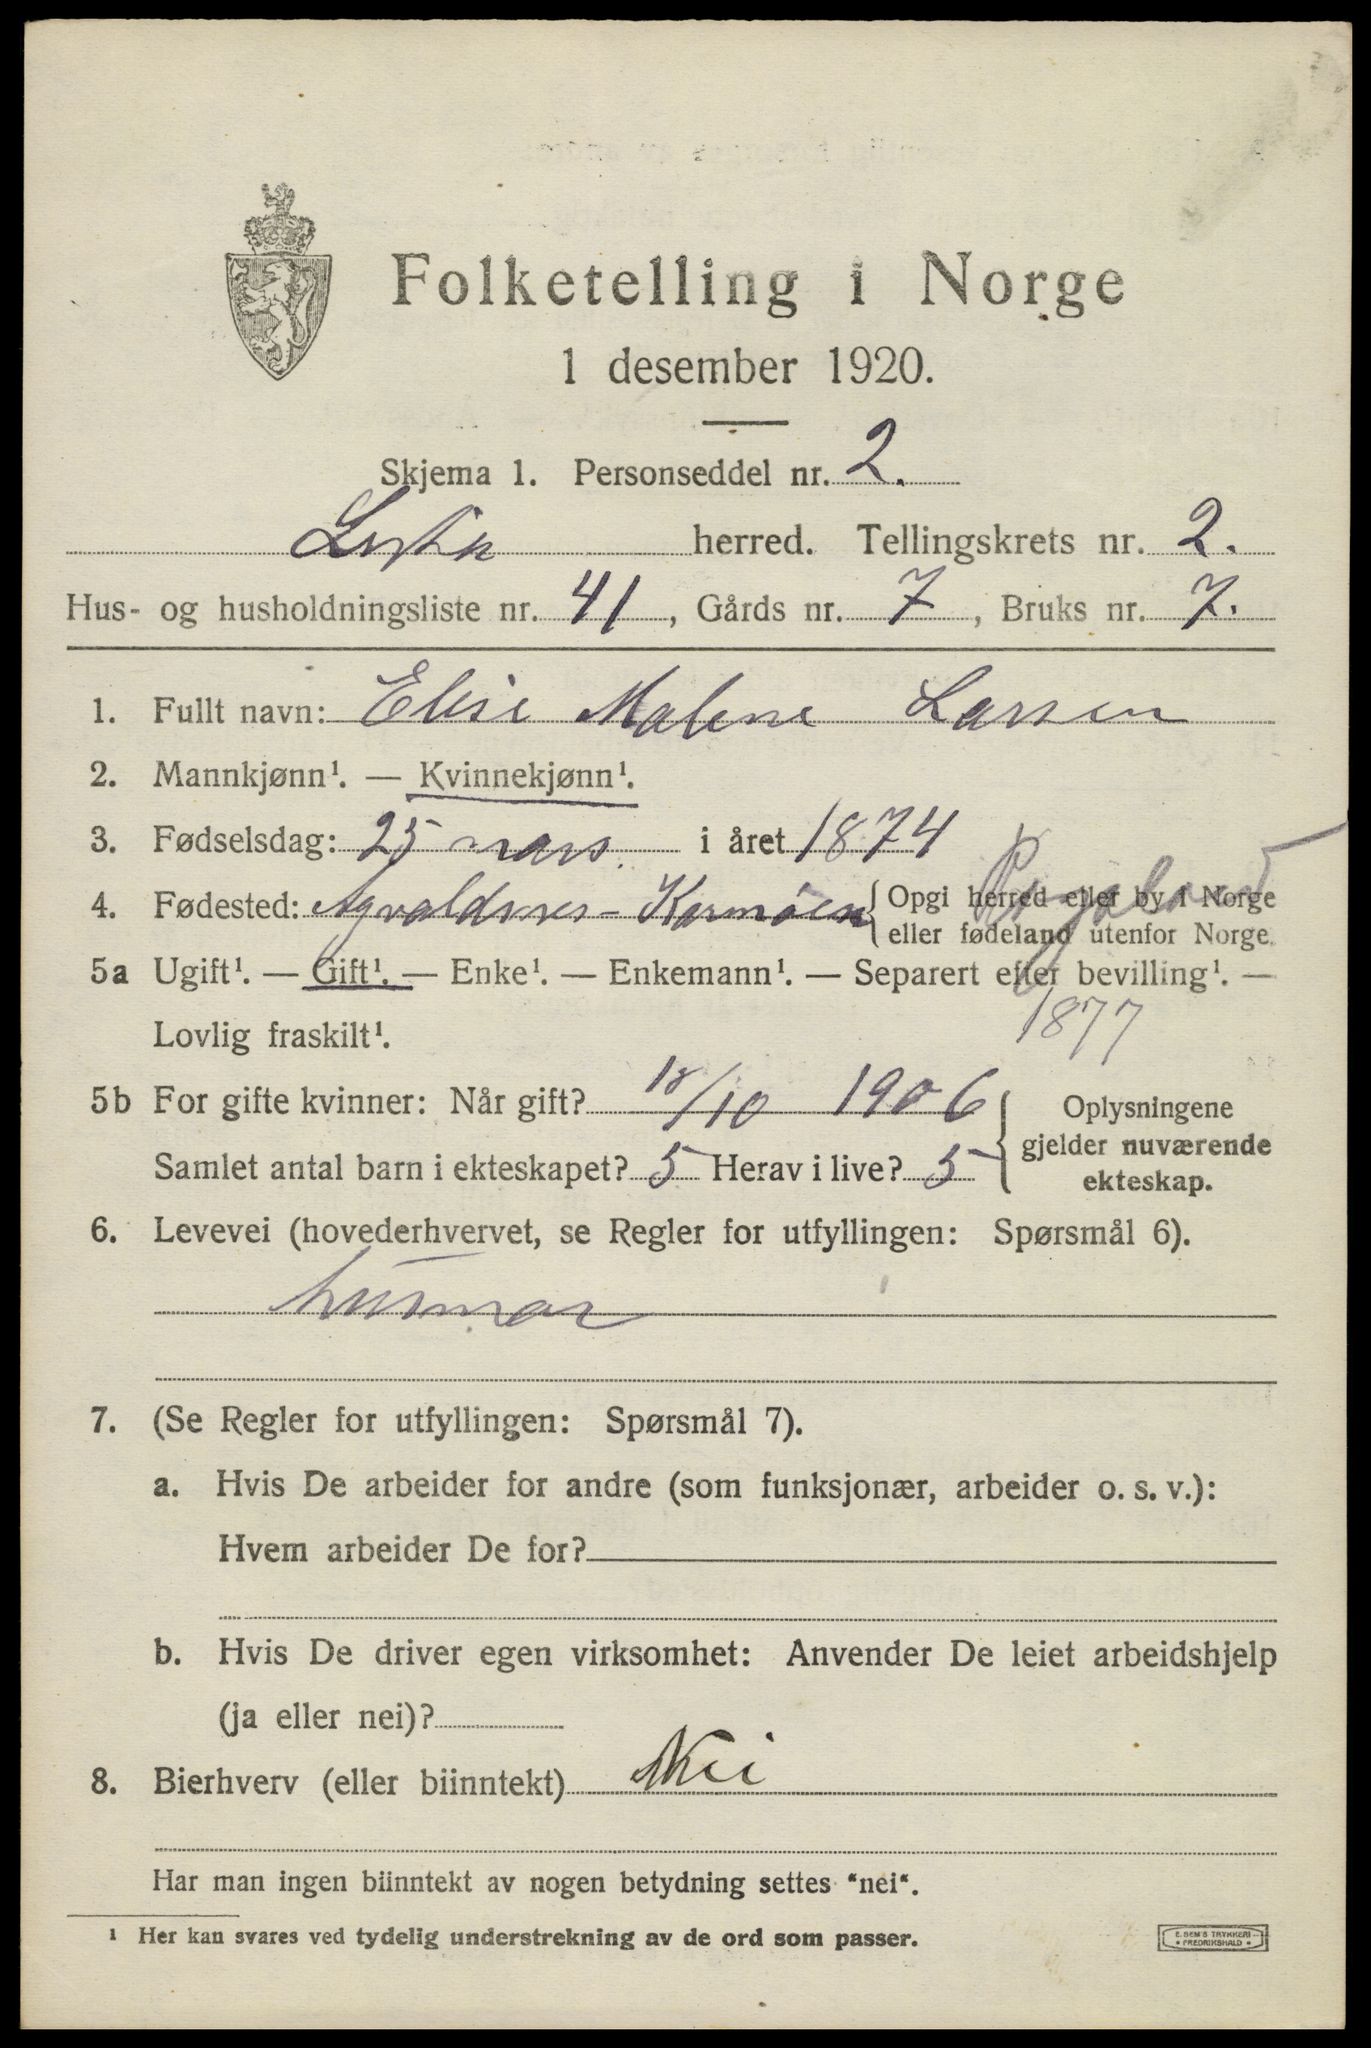 Folketelling i Norge
1 desember 1920.
Skjema 1. Personseddel nr. 2.
herred. Tellingskrets nr. 2.
Hus- og husholdningsliste nr. 41, Gårds nr. 7, Bruks nr. 7.
1. Fullt navn: Elise Malene Larsen
2. Mannkjønn¹. — Kvinnekjønn¹.
3. Fødselsdag: 25 mars i året 1874
4. Fødested: Agvaldsnes - Karmöen { Opgi herred eller by i Norge
eller fødeland utenfor Norge.
Rogaland
5a Ugift¹. — Gift¹. — Enke¹. — Enkemann¹. — Separert efter bevilling¹. —
1877
Lovlig fraskilt¹.
5b For gifte kvinner: Når gift? 18/10 1906
Samlet antal barn i ekteskapet? 5 Herav i live? 5
Oplysningene
gjelder nuværende
ekteskap.
6. Levevei (hovederhvervet, se Regler for utfyllingen: Spørsmål 6).
husmor
7. (Se Regler for utfyllingen: Spørsmål 7).
a. Hvis De arbeider for andre (som funksjonær, arbeider o. s. v.):
Hvem arbeider De for?
b. Hvis De driver egen virksomhet: Anvender De leiet arbeidshjelp
(ja eller nei)?
8. Bierhverv (eller biinntekt) Nei
Har man ingen biinntekt av nogen betydning settes "nei".
¹ Her kan svares ved tydelig understrekning av de ord som passer.
E. SEM'S TRYKKERI
• FREDRIKSHALD •